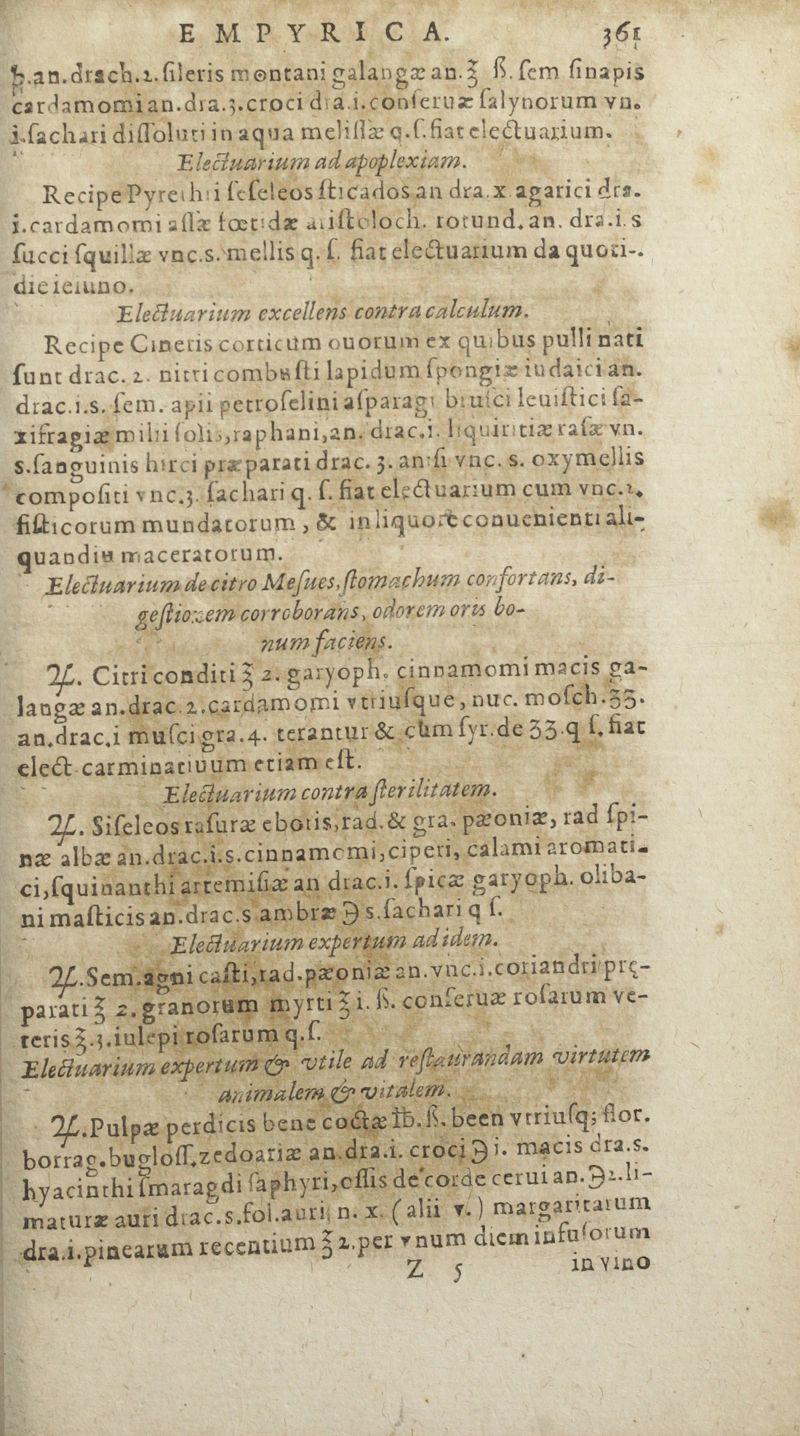 EMPYRICA. 361
b.an.drach.1.ſileris montani galangæ an.℥ ß.ſem ſinapis
cardamomi an.dra.3.croci dra.i.conſeruæ ſalynorum vn.
i.ſachari diſſoluti in aqua meliſſæ q.ſ.fiat electuarium.
Electuarium ad apoplexiam.
Recipe Pyrethri ſeſeleos ſticados an dra.x agarici dra.
i.cardamomi aſſæ fœtidæ ariſtoloch. rotund. an. dra.i.s
ſucci ſquillæ vnc.s. mellis q. ſ. fiat electuarium da quoti-
die ieiuno.
Electuarium excellens contra calculum.
Recipe Cineris corticum ouorum ex quibus pulli nati
ſunt drac. 2. nitri combuſti lapidum ſpongiæ iudaici an.
drac.i.s. ſem. apii petroſelini aſparagi bruſci leuiſtici ſa-
xifragiæ milii ſolis,raphani,an. drac.i. liquiritiæ raſæ vn.
s.ſanguinis hirci præparati drac. 3. aniſi vnc. s. oxymellis
compoſiti vnc.3. ſachari q. ſ. fiat electuarium cum vnc.2.
fiſticorum mundatorum, & in liquore conuenienti ali-
quandiu maceratorum.
Electuarium de citro Meſues, ſtomachum confortans, di-
geſtionem corroborans, odorem oris bo-
num faciens.
℞. Citri conditi ℥ 2. garyoph. cinnamomi macis ga-
langæ an.drac.2.cardamomi vtriuſque, nuc. moſch.℥℥.
an.drac.i muſci gra.4. terantur & cùm ſyr.de ℥℥.q ſ. fiat
elect carminatiuum etiam eſt.
Electuarium contra ſterilitatem.
℞. Siſeleos raſuræ eboris,rad.& gra. pæoniæ, rad ſpi-
næ albæ an.drac.i.s.cinnamomi,ciperi, calami aromati-
ci,ſquinanthi artemiſiæ an drac.i. ſpicæ garyoph. oliba-
ni maſticis an.drac.s ambræ ℈ s.ſachari q ſ.
Electuarium expertum ad idem.
℞.Sem.agni caſti,rad.pæoniæ an.vnc.i.coriandri prę-
parati ℥ 2.granorum myrti ℥ i.ß. conſeruæ roſarum ve-
teris ℥.3.iulepi roſarum q.ſ.
Electuarium expertum & vtile ad reſtaurandam virtutem
animalem & vitalem.
℞.Pulpæ perdicis bene coctæ lb.ß. been vtriuſq; flor.
borrag.bugloſſ.zedoariæ an.dra.i. croci ℈ i. macis dra.s.
hyacinthi ſmaragdi ſaphyri,oſſis de corde cerui an.℈2.li-
maturæ auri drac.s.fol.auri n. x. (alii v.) margaritarum
dra.i.pinearum recentium ℥ 2.per vnum diem infuſorum
Z 5 in vino